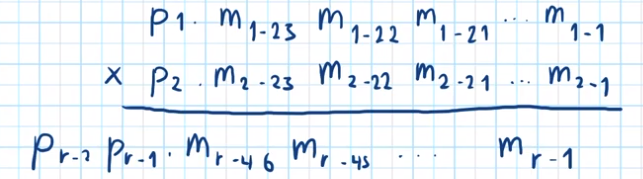 p1. m1-23 m1-22 m1-21 ... m1-1
x p2. m2-23 m2-22 m2-21 ... m2-1
pr-2 pr-1. mr-46 mr-45 ... mr-1